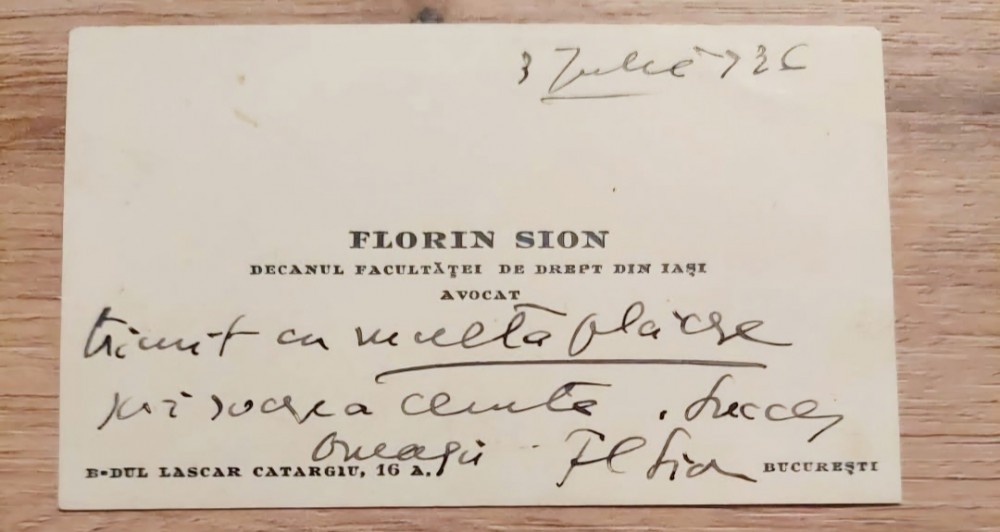 3 Iulie 936
FLORIN SION
DECANUL FACULTĂŢEI DE DREPT DIN IAŞI
AVOCAT
trimit cu multă plăcere
scrisoarea cerută. Succes
Fl Sion
B-DUL LASCAR CATARGIU, 16 A. BUCUREŞTI